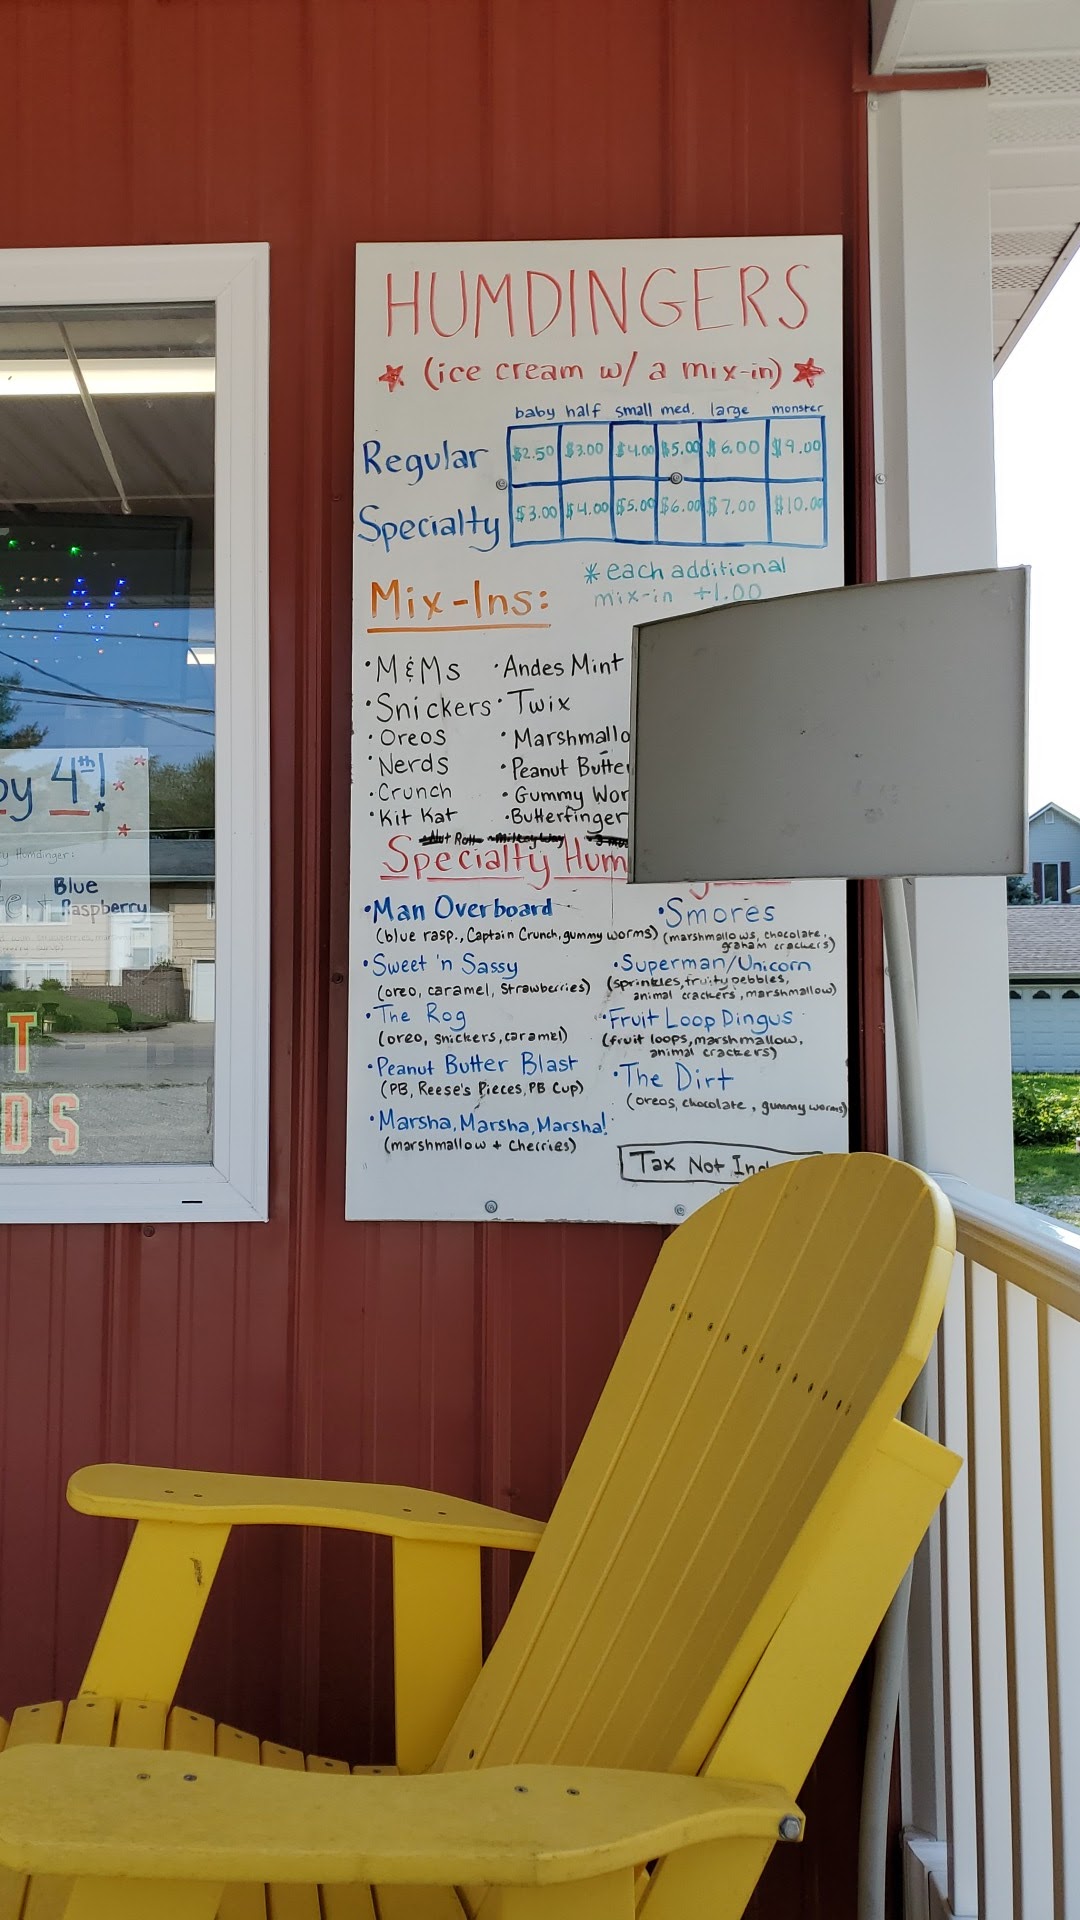 HUMDINGERS
(ice cream w/ a mix-in)
baby half small med. large monster
Regular $2.50 $3.00 $4.00 $5.00 $6.00 $9.00
Specialty $3.00 $4.00 $5.00 $6.00 $7.00 $10.00
* each additional
mix-in +1.00
Mix-Ins:
• M&Ms • Andes Mint
• Snickers • Twix
• Oreos • Marshmallo
• Nerds • Peanut Butte
• Crunch • Gummy Wor
• Kit Kat • Butterfinger
Specialty Hum
• Man Overboard
(blue rasp., Captain Crunch, gummy worms)
• Sweet 'n Sassy
(oreo, caramel, strawberries)
• The Rog
(oreo, snickers, caramel)
• Peanut Butter Blast
(PB, Reese's Pieces, PB Cup)
• Marsha, Marsha, Marsha!
(marshmallow + cherries)
• Smores
(marshmallows, chocolate,
graham crackers)
• Superman/Unicorn
(sprinkles, fruity pebbles,
animal crackers, marshmallow)
• Fruit Loop Dingus
(fruit loops, marshmallow,
animal crackers)
• The Dirt
(oreos, chocolate, gummy worms)
Tax Not Inc
py 4th!
y Humdinger:
Blue
+ Raspberry
T
DS